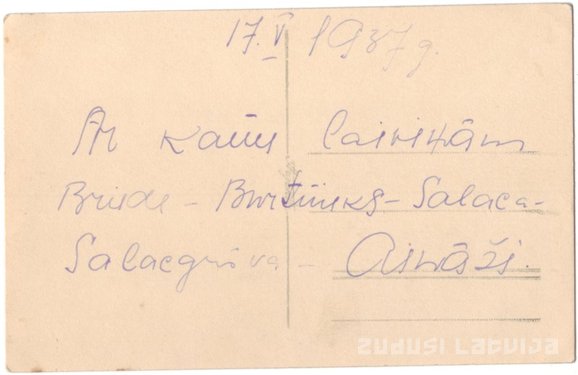 17.V 1937 g.
Ar laiviņām
Briede – Burtnieks – Salaca –
Salacgrīva – Ainaži.
zudusi Latvija